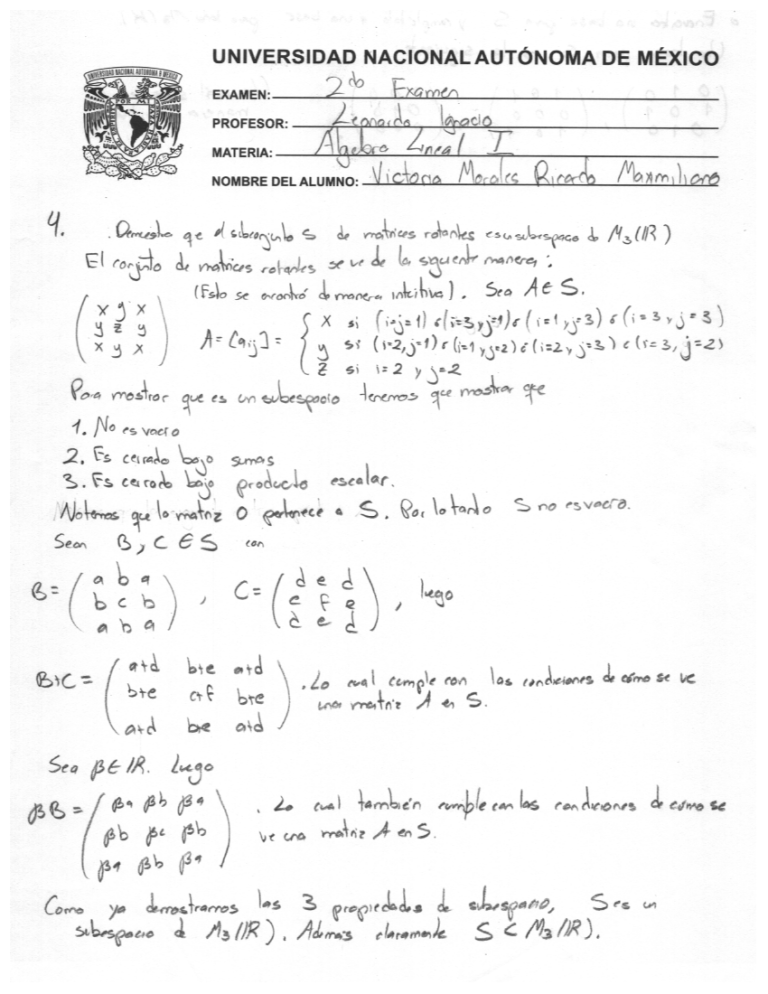 UNIVERSIDAD NACIONAL AUTÓNOMA DE MÉXICO
EXAMEN: 2do Examen
PROFESOR: Leonardo Ignacio
MATERIA: Algebra Lineal I
NOMBRE DEL ALUMNO: Victoria Morales Ricardo Maxmiliano
4. Demuestra que el subconjunto S de matrices rotantes es un subespacio de M₃(IR)
El conjunto de matrices rotantes se ve de la siguiente manera:
(Esto se encontró de manera intuitiva). Sea A ∈ S.
( x y x
y z y
x y x )
A = [aij] = { x si (i=j=1) ó (i=3 y j=1) ó (i=1 y j=3) ó (i=3 y j=3)
y si (i=2, j=1) ó (i=1 y j=2) ó (i=2 y j=3) ó (i=3, j=2)
z si i=2 y j=2
Para mostrar que es un subespacio tenemos que mostrar que
1. No es vacío
2. Es cerrado bajo sumas
3. Es cerrado bajo producto escalar.
Notemos que la matriz 0 pertenece a S. Por lo tanto S no es vacío.
Sean B, C ∈ S con
B = ( a b a
b c b
a b a ) , C = ( d e d
e f e
d e d ) , luego
B+C = ( a+d b+e a+d
b+e c+f b+e
a+d b+e a+d ) . Lo cual cumple con las condiciones de cómo se ve
una matriz A en S.
Sea β ∈ IR. Luego
βB = ( βa βb βa
βb βc βb
βa βb βa ) . Lo cual también cumple con las condiciones de cómo se
ve una matriz A en S.
Como ya demostramos las 3 propiedades de subespacio, S es un
subespacio de M₃(IR). Además claramente S ⊂ M₃(IR).